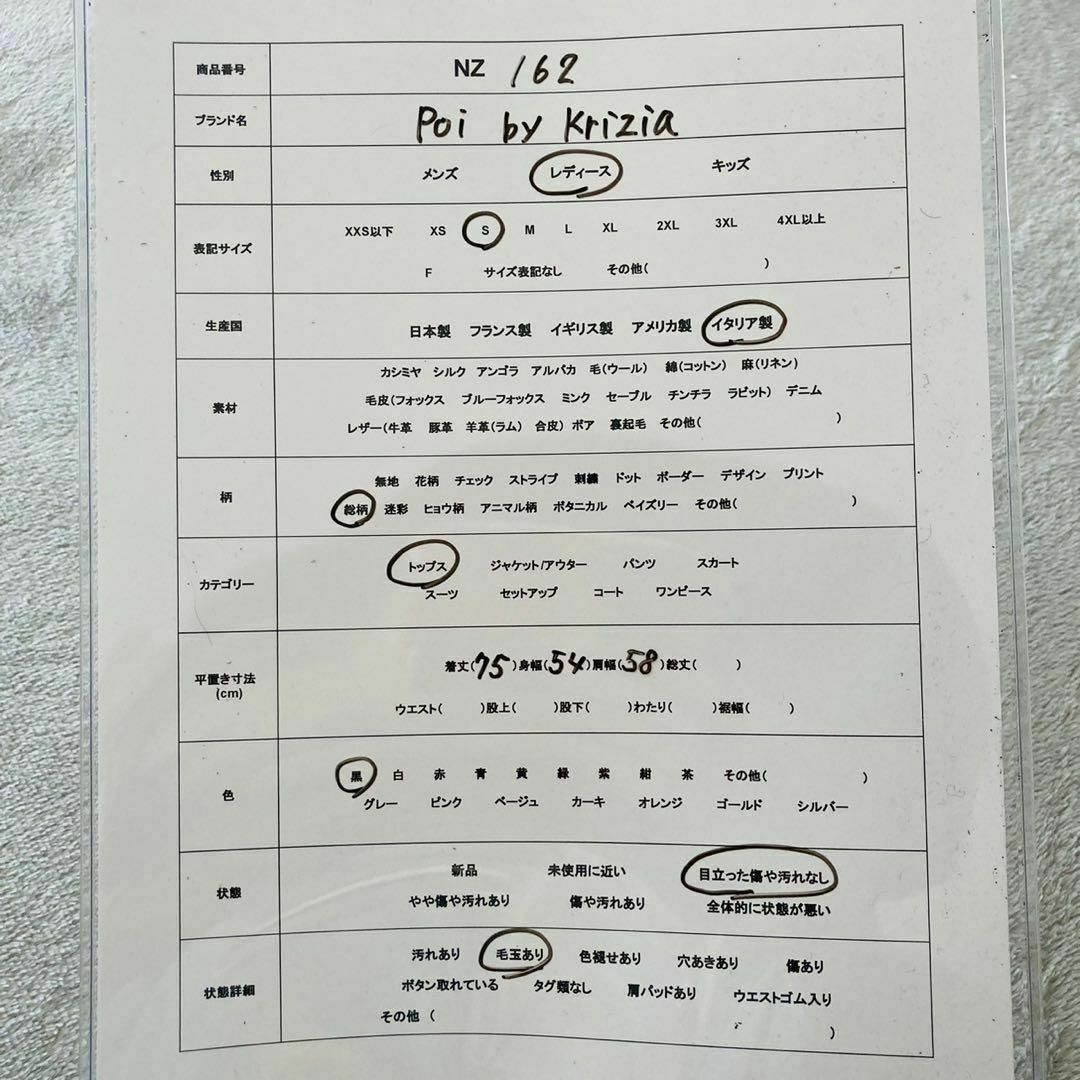 商品番号 NZ 162
ブランド名 Poi by Krizia
性別 メンズ レディース キッズ
表記サイズ XXS以下 XS S M L XL 2XL 3XL 4XL以上
F サイズ表記なし その他( )
生産国 日本製 フランス製 イギリス製 アメリカ製 イタリア製
素材 カシミヤ シルク アンゴラ アルパカ 毛(ウール) 綿(コットン) 麻(リネン)
毛皮(フォックス ブルーフォックス ミンク セーブル チンチラ ラビット) デニム
レザー(牛革 豚革 羊革(ラム) 合皮) ボア 裏起毛 その他( )
柄 無地 花柄 チェック ストライプ 刺繍 ドット ボーダー デザイン プリント
総柄 迷彩 ヒョウ柄 アニマル柄 ボタニカル ペイズリー その他( )
カテゴリー トップス ジャケット/アウター パンツ スカート
スーツ セットアップ コート ワンピース
平置き寸法 (cm) 着丈(75)身幅(54)肩幅(58)総丈( )
ウエスト( )股上( )股下( )わたり( )裾幅( )
色 黒 白 赤 青 黄 緑 紫 紺 茶 その他( )
グレー ピンク ベージュ カーキ オレンジ ゴールド シルバー
状態 新品 未使用に近い 目立った傷や汚れなし
やや傷や汚れあり 傷や汚れあり 全体的に状態が悪い
状態詳細 汚れあり 毛玉あり 色褪せあり 穴あきあり 傷あり
ボタン取れている タグ類なし 肩パッドあり ウエストゴム入り
その他 ( )